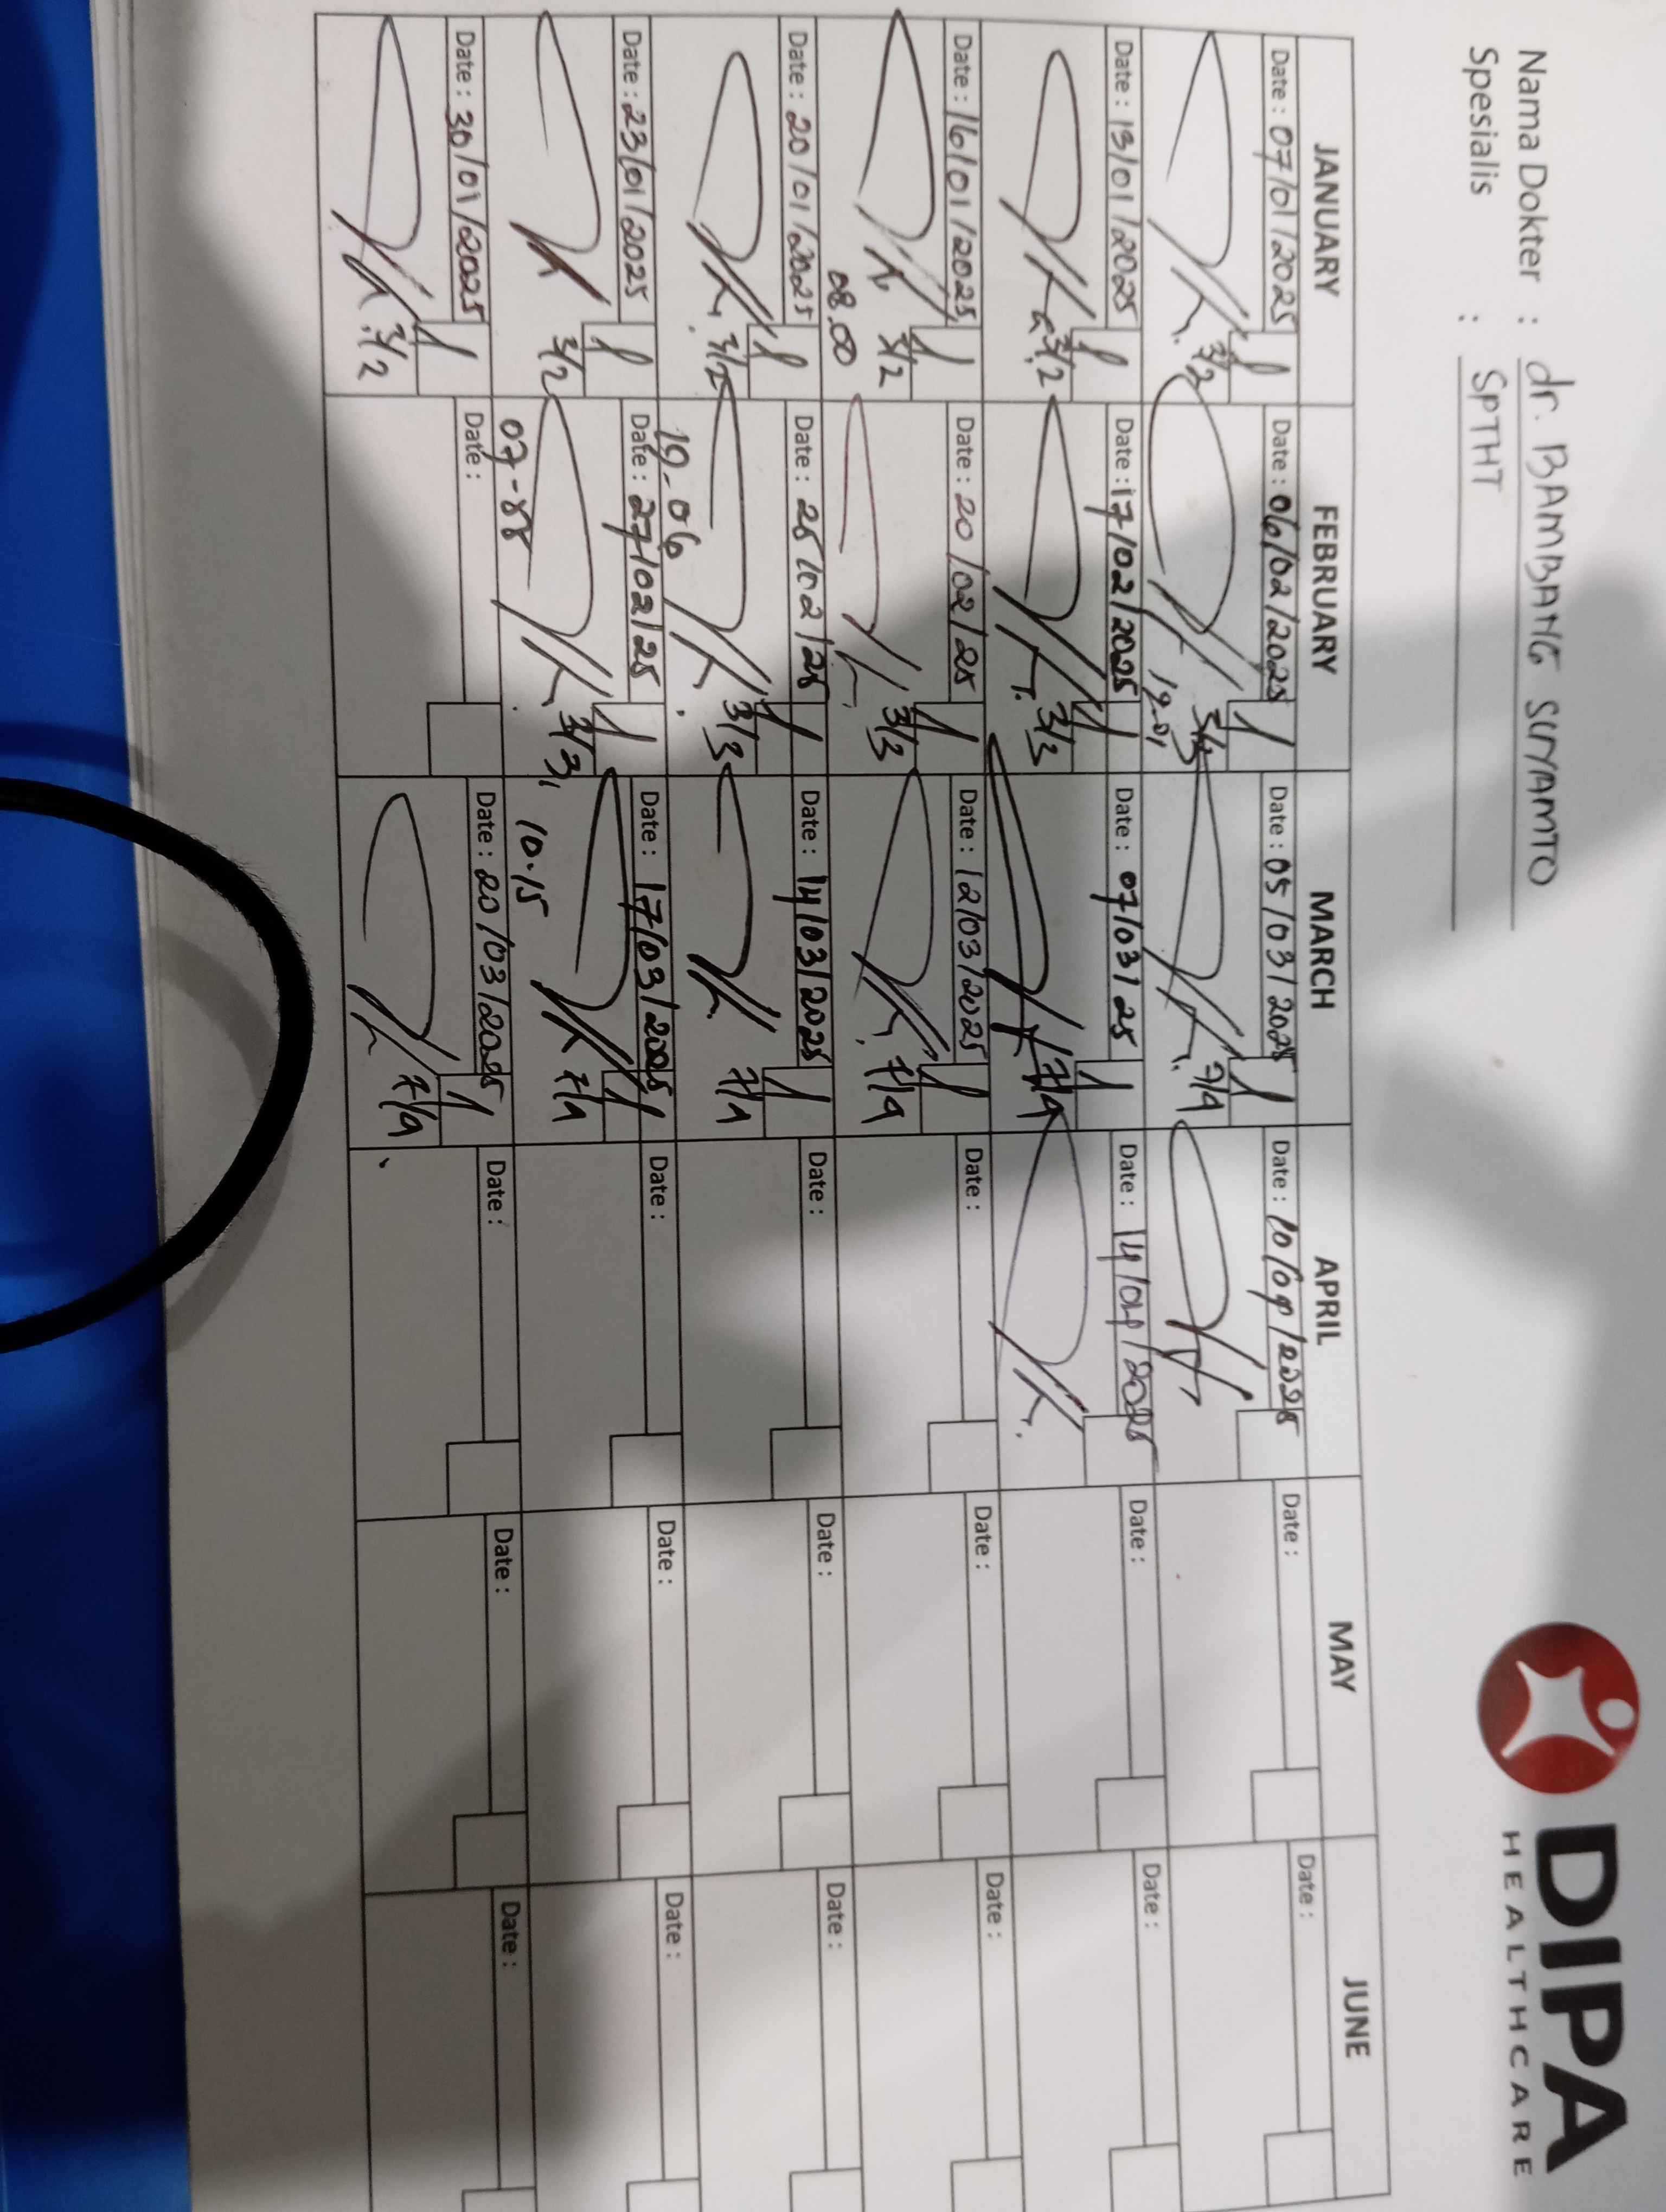 Nama Dokter : dr. BAMBANG SUYAMTO
Spesialis : SPTHT
DIPA
HEALTHCARE
JANUARY FEBRUARY MARCH APRIL MAY JUNE
Date : 07/01/2025 Date : 06/02/2025 Date : 05/03/2025 Date : 10/04/2025 Date : Date :
3/2 19.01 3/3 7/4
Date : 13/01/2025 Date : 17/02/2025 Date : 07/03/25 Date : 14/04/2025 Date : Date :
3/2 3/3 7/4
Date : 16/01/2025 Date : 20/02/25 Date : 12/03/2025 Date : Date : Date :
3/2 3/3 7/4
08.00
Date : 20/01/2025 Date : 25/02/25 Date : 14/03/2025 Date : Date : Date :
3/2 3/3 7/4
19-06
Date : 23/01/2025 Date : 27/02/25 Date : 17/03/2025 Date : Date : Date :
3/2 3/3 7/4
10.15
Date : 30/01/2025 Date : Date : 20/03/2025 Date : Date : Date :
3/2 7/4